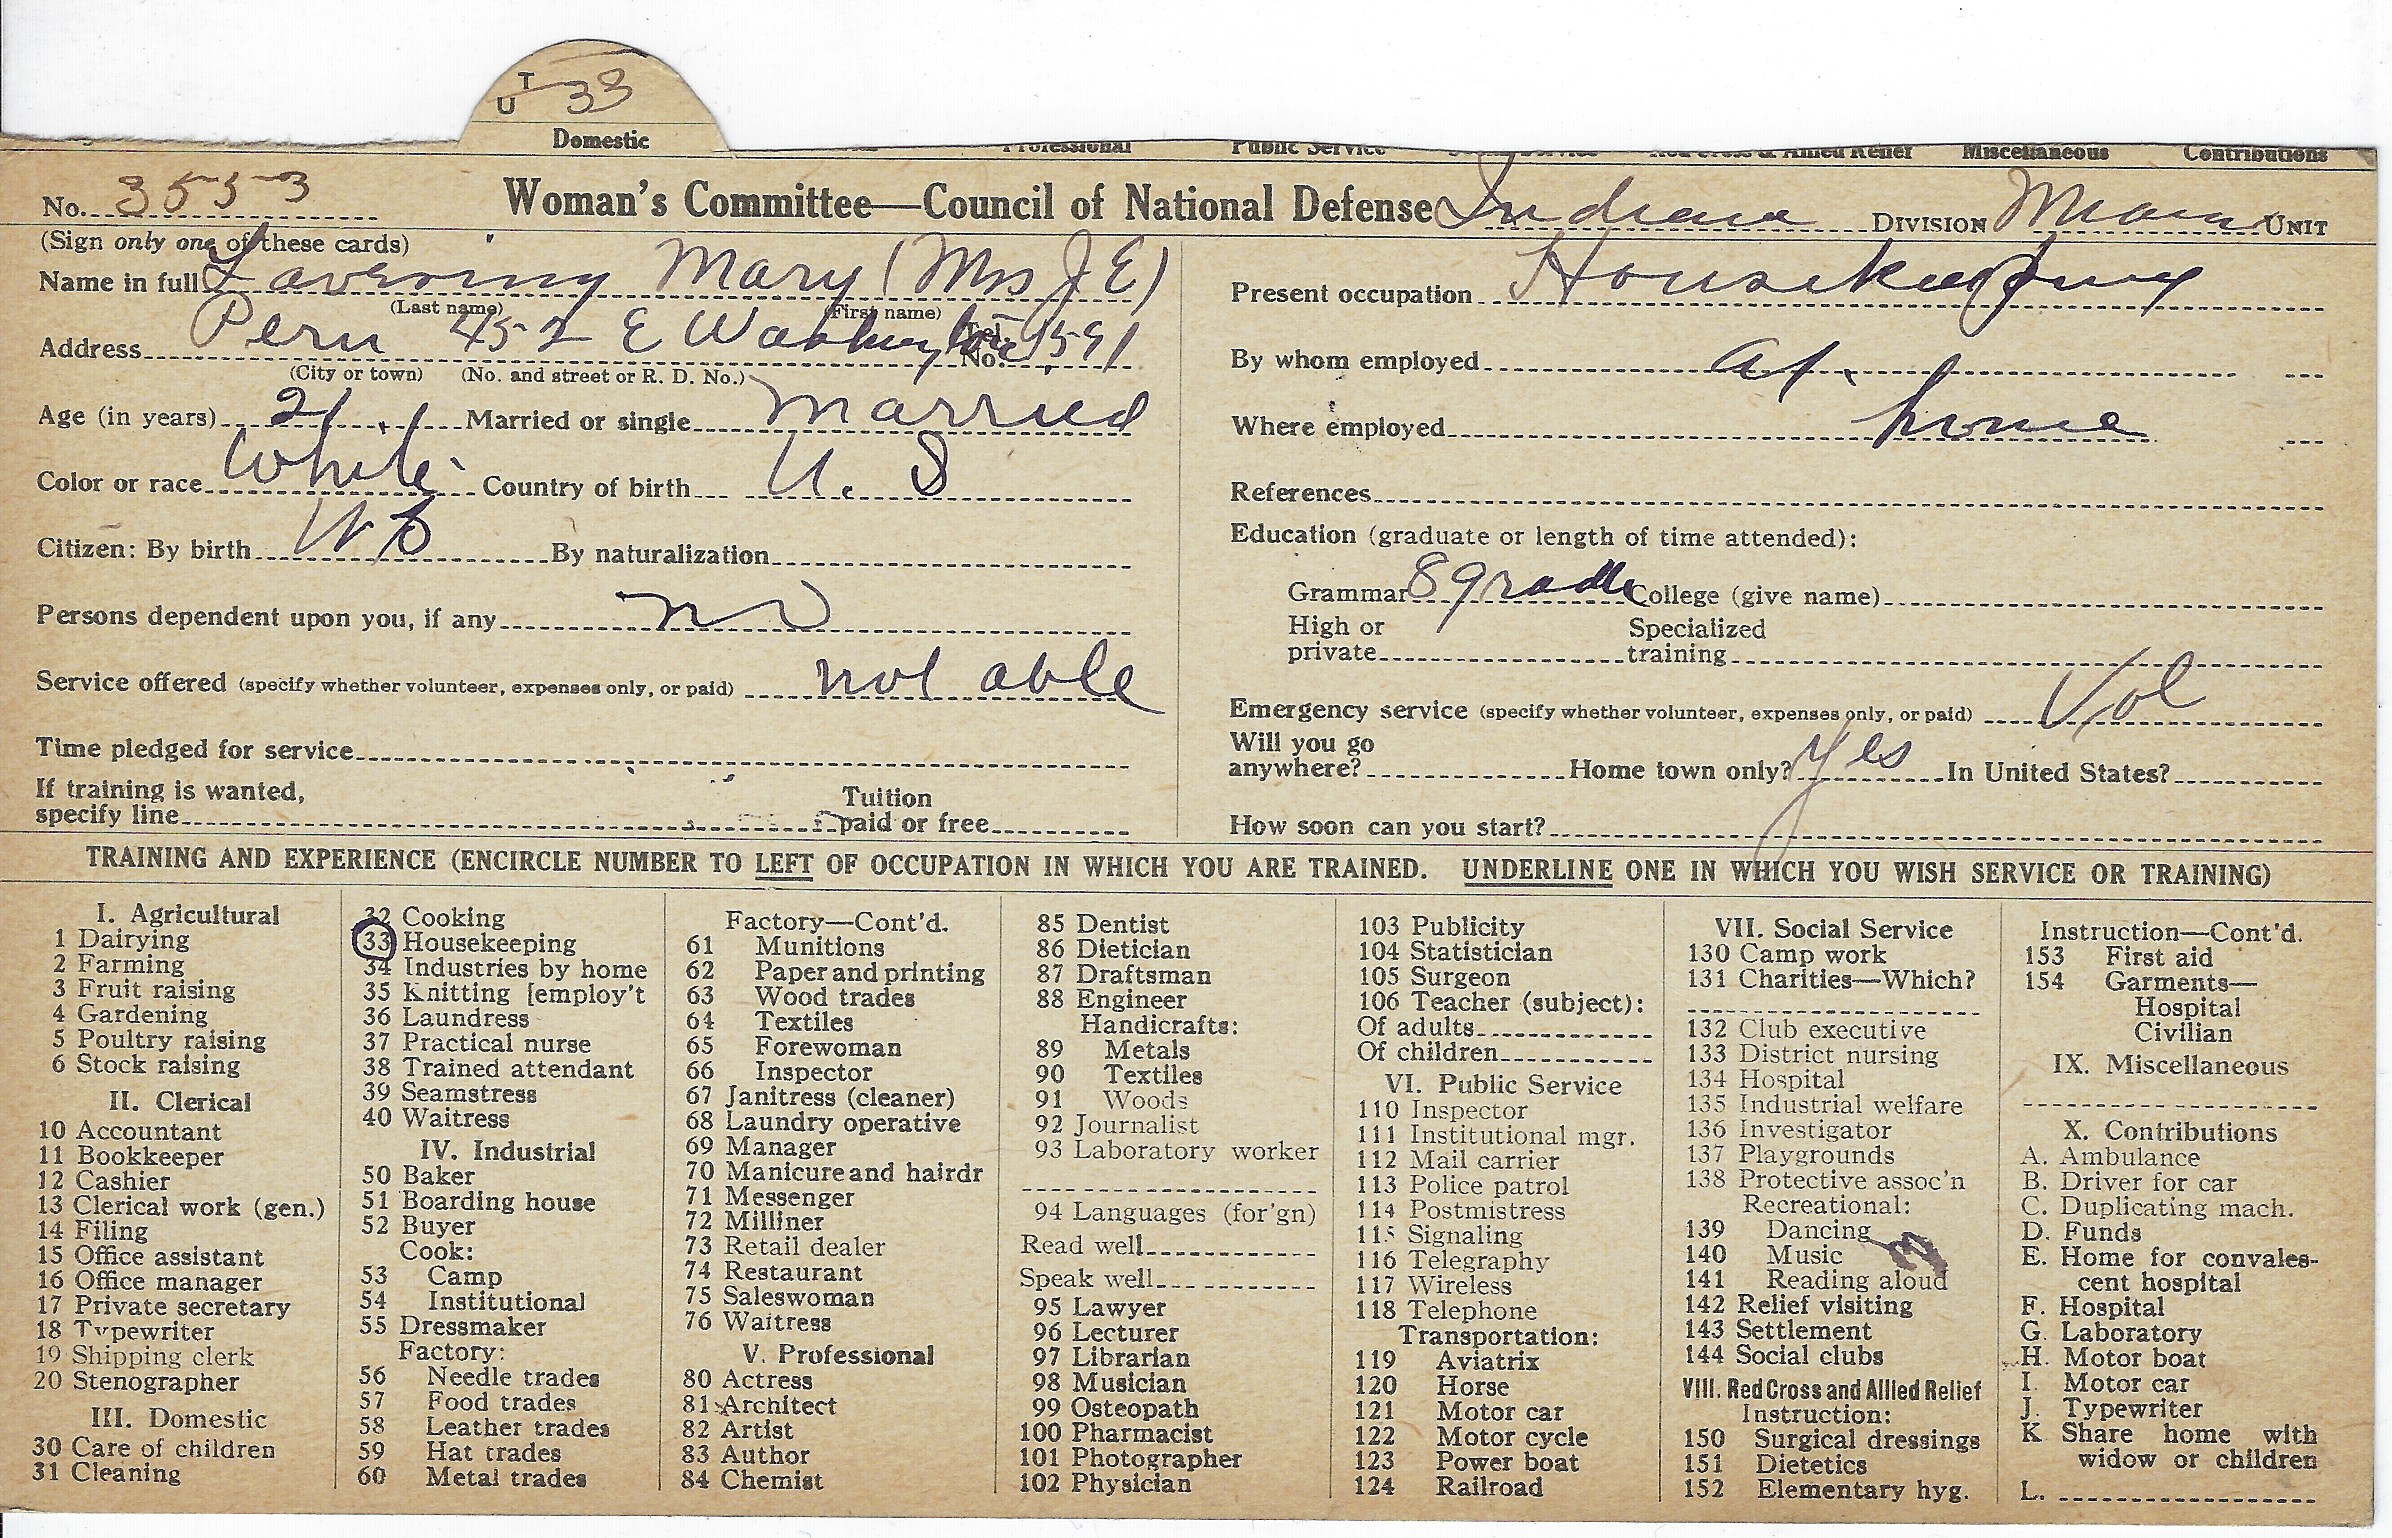 T
U 33
Domestic
Professional Public Service Social Service Red Cross & Allied Relief Miscellaneous Contributions
No. 3553 Woman's Committee—Council of National Defense Indiana DIVISION Miami UNIT
(Sign only one of these cards)
Name in full Lavering Mary (Mrs J E)
(Last name) (First name)
Address Peru 452 E Washington Tel. No. 1591
(City or town) (No. and street or R. D. No.)
Age (in years) 21 Married or single married
Color or race White Country of birth U. S
Citizen: By birth By naturalization
Persons dependent upon you, if any no
Service offered (specify whether volunteer, expenses only, or paid) not able
Time pledged for service
If training is wanted,
specify line Tuition paid or free
Present occupation Housekeeping
By whom employed at
Where employed home
References
Education (graduate or length of time attended):
Grammar 8 grade College (give name)
High or private Specialized training
Emergency service (specify whether volunteer, expenses only, or paid) Vol
Will you go anywhere? Home town only? yes In United States?
How soon can you start?
TRAINING AND EXPERIENCE (ENCIRCLE NUMBER TO LEFT OF OCCUPATION IN WHICH YOU ARE TRAINED. UNDERLINE ONE IN WHICH YOU WISH SERVICE OR TRAINING)
I. Agricultural
1 Dairying
2 Farming
3 Fruit raising
4 Gardening
5 Poultry raising
6 Stock raising
II. Clerical
10 Accountant
11 Bookkeeper
12 Cashier
13 Clerical work (gen.)
14 Filing
15 Office assistant
16 Office manager
17 Private secretary
18 Typewriter
19 Shipping clerk
20 Stenographer
III. Domestic
30 Care of children
31 Cleaning
32 Cooking
33 Housekeeping
34 Industries by home
35 Knitting [employ't
36 Laundress
37 Practical nurse
38 Trained attendant
39 Seamstress
40 Waitress
IV. Industrial
50 Baker
51 Boarding house
52 Buyer
Cook:
53 Camp
54 Institutional
55 Dressmaker
Factory:
56 Needle trades
57 Food trades
58 Leather trades
59 Hat trades
60 Metal trades
Factory—Cont'd.
61 Munitions
62 Paper and printing
63 Wood trades
64 Textiles
65 Forewoman
66 Inspector
67 Janitress (cleaner)
68 Laundry operative
69 Manager
70 Manicure and hairdr
71 Messenger
72 Milliner
73 Retail dealer
74 Restaurant
75 Saleswoman
76 Waitress
V. Professional
80 Actress
81 Architect
82 Artist
83 Author
84 Chemist
85 Dentist
86 Dietician
87 Draftsman
88 Engineer
Handicrafts:
89 Metals
90 Textiles
91 Woods
92 Journalist
93 Laboratory worker
94 Languages (for'gn)
Read well
Speak well
95 Lawyer
96 Lecturer
97 Librarian
98 Musician
99 Osteopath
100 Pharmacist
101 Photographer
102 Physician
103 Publicity
104 Statistician
105 Surgeon
106 Teacher (subject):
Of adults
Of children
VI. Public Service
110 Inspector
111 Institutional mgr.
112 Mail carrier
113 Police patrol
114 Postmistress
115 Signaling
116 Telegraphy
117 Wireless
118 Telephone
Transportation:
119 Aviatrix
120 Horse
121 Motor car
122 Motor cycle
123 Power boat
124 Railroad
VII. Social Service
130 Camp work
131 Charities—Which?
132 Club executive
133 District nursing
134 Hospital
135 Industrial welfare
136 Investigator
137 Playgrounds
138 Protective assoc'n
Recreational:
139 Dancing
140 Music
141 Reading aloud
142 Relief visiting
143 Settlement
144 Social clubs
VIII. Red Cross and Allied Relief
Instruction:
150 Surgical dressings
151 Dietetics
152 Elementary hyg.
Instruction—Cont'd.
153 First aid
154 Garments—
Hospital
Civilian
IX. Miscellaneous
X. Contributions
A. Ambulance
B. Driver for car
C. Duplicating mach.
D. Funds
E. Home for convales-
cent hospital
F. Hospital
G. Laboratory
H. Motor boat
I. Motor car
J. Typewriter
K Share home with
widow or children
L.